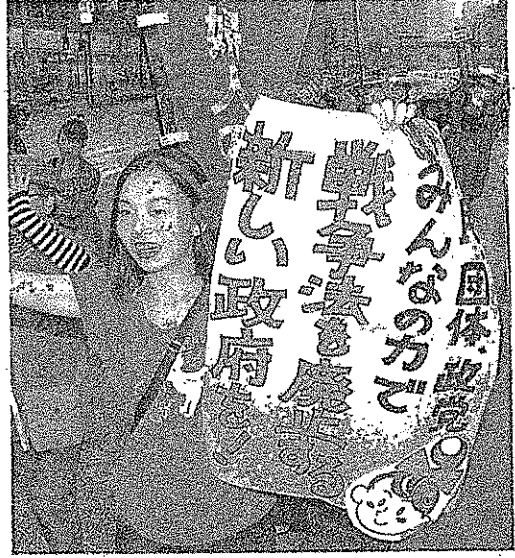 団体・政党
みんなの力で
戦争法を廃案する
新しい政府を